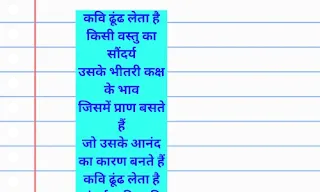 कवि ढूंढ लेता है
किसी वस्तु का
सौंदर्य
उसके भीतरी कक्ष
के भाव
जिसमें प्राण बसते
हैं
जो उसके आनंद
का कारण बनते हैं
कवि ढूंढ लेता है